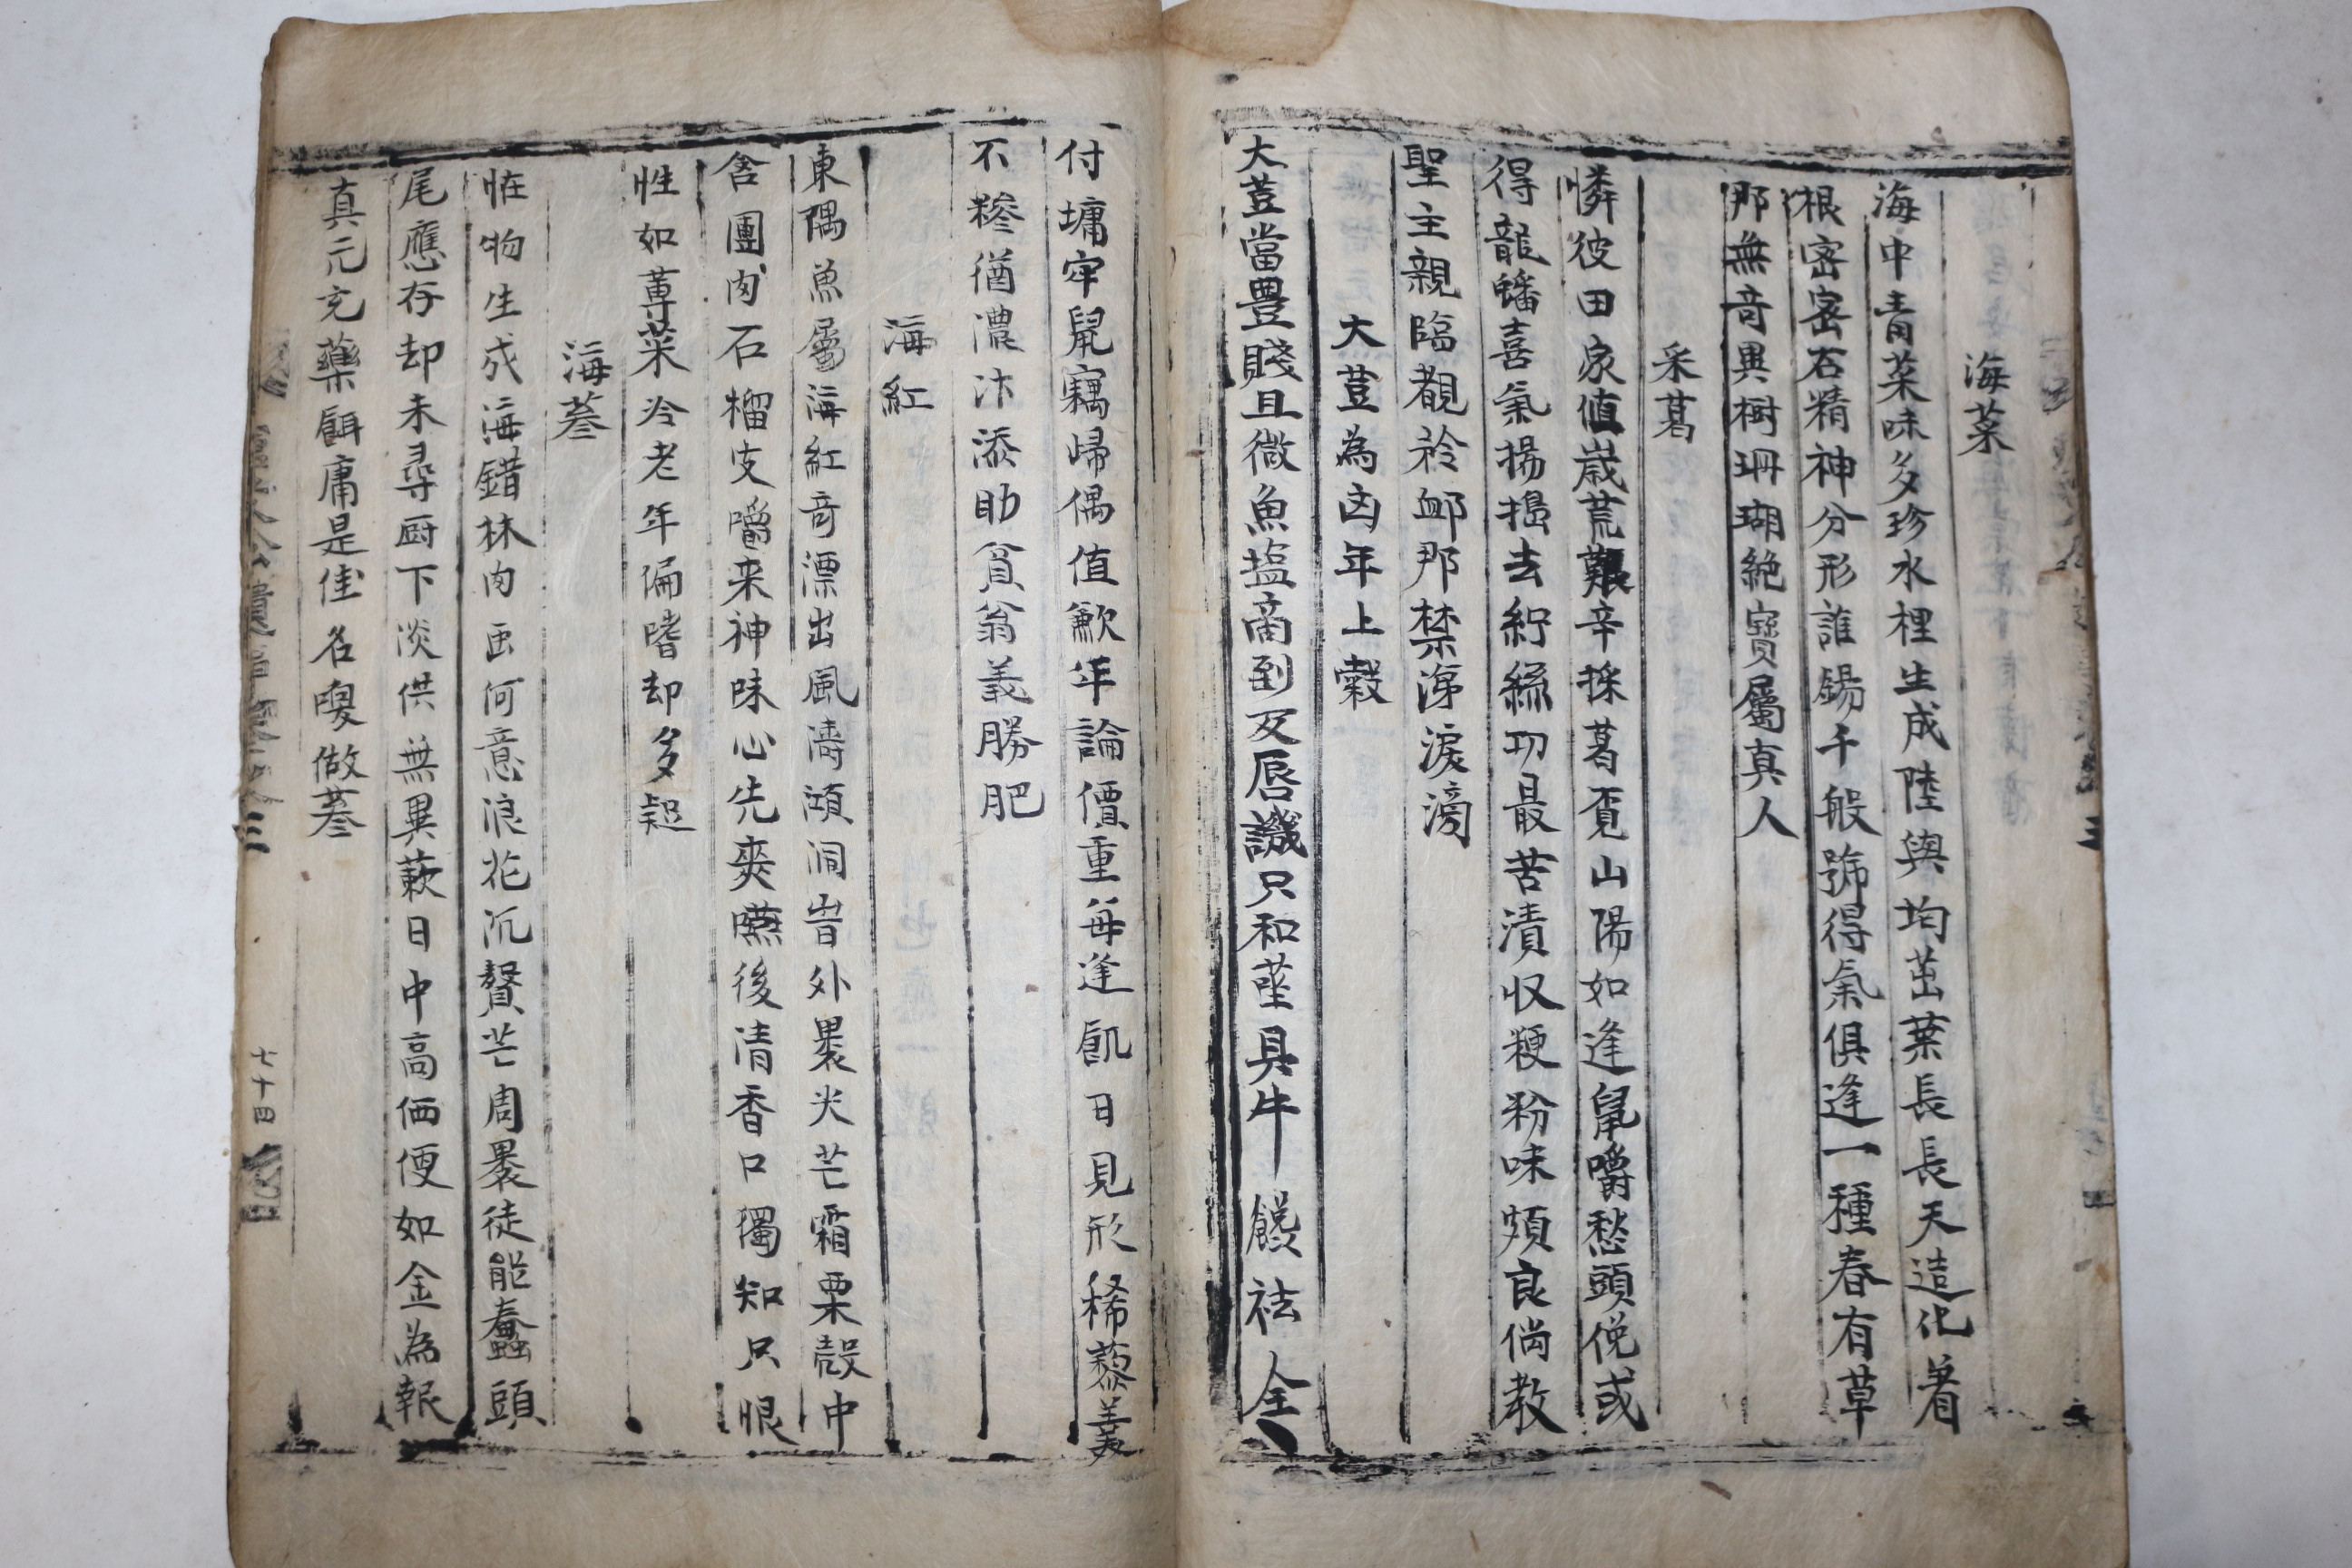 海菜
海中青菜味多珍水裡生成陸與均茁葉長長天造化着
根密密石精神分形誰錫千般號得氣俱逢一種春有草
那無奇異樹珊瑚絶寶屬真人
采葛
憐彼田家値歲荒艱辛採葛覓山陽如逢鼠嚼愁頭俛或
得龍蟠喜氣揚搗去紵絲功最苦漬収粳粉味頗良倘教
聖主親臨覩矜䘏那禁涕淚滂
大荳為凶年上穀
大荳當豊賤且微魚塩商到反唇譏只和莝具牛餕祛全
付墉穿鼠竊歸偶值歉年論價重每逢飢日見形稀藜羹
不糝猶濃汁添助貧翁義勝肥
海紅
東隅魚屬海紅奇漂出風濤澒洞岩外裹尖芒霜栗殼中
含團肉石榴皮嚼来神味心先爽嚥後清香口獨知只恨
性如蓴菜冷老年偏嗜却多疑
海蔘
恠物生成海錯林肉画何意浪花沉贅芒周裹徒能蠢頭
尾應存却未尋厨下淡供無異蔌日中高価便如金為報
真元充藥餌庸是佳名嗄做蔘
三
七十四